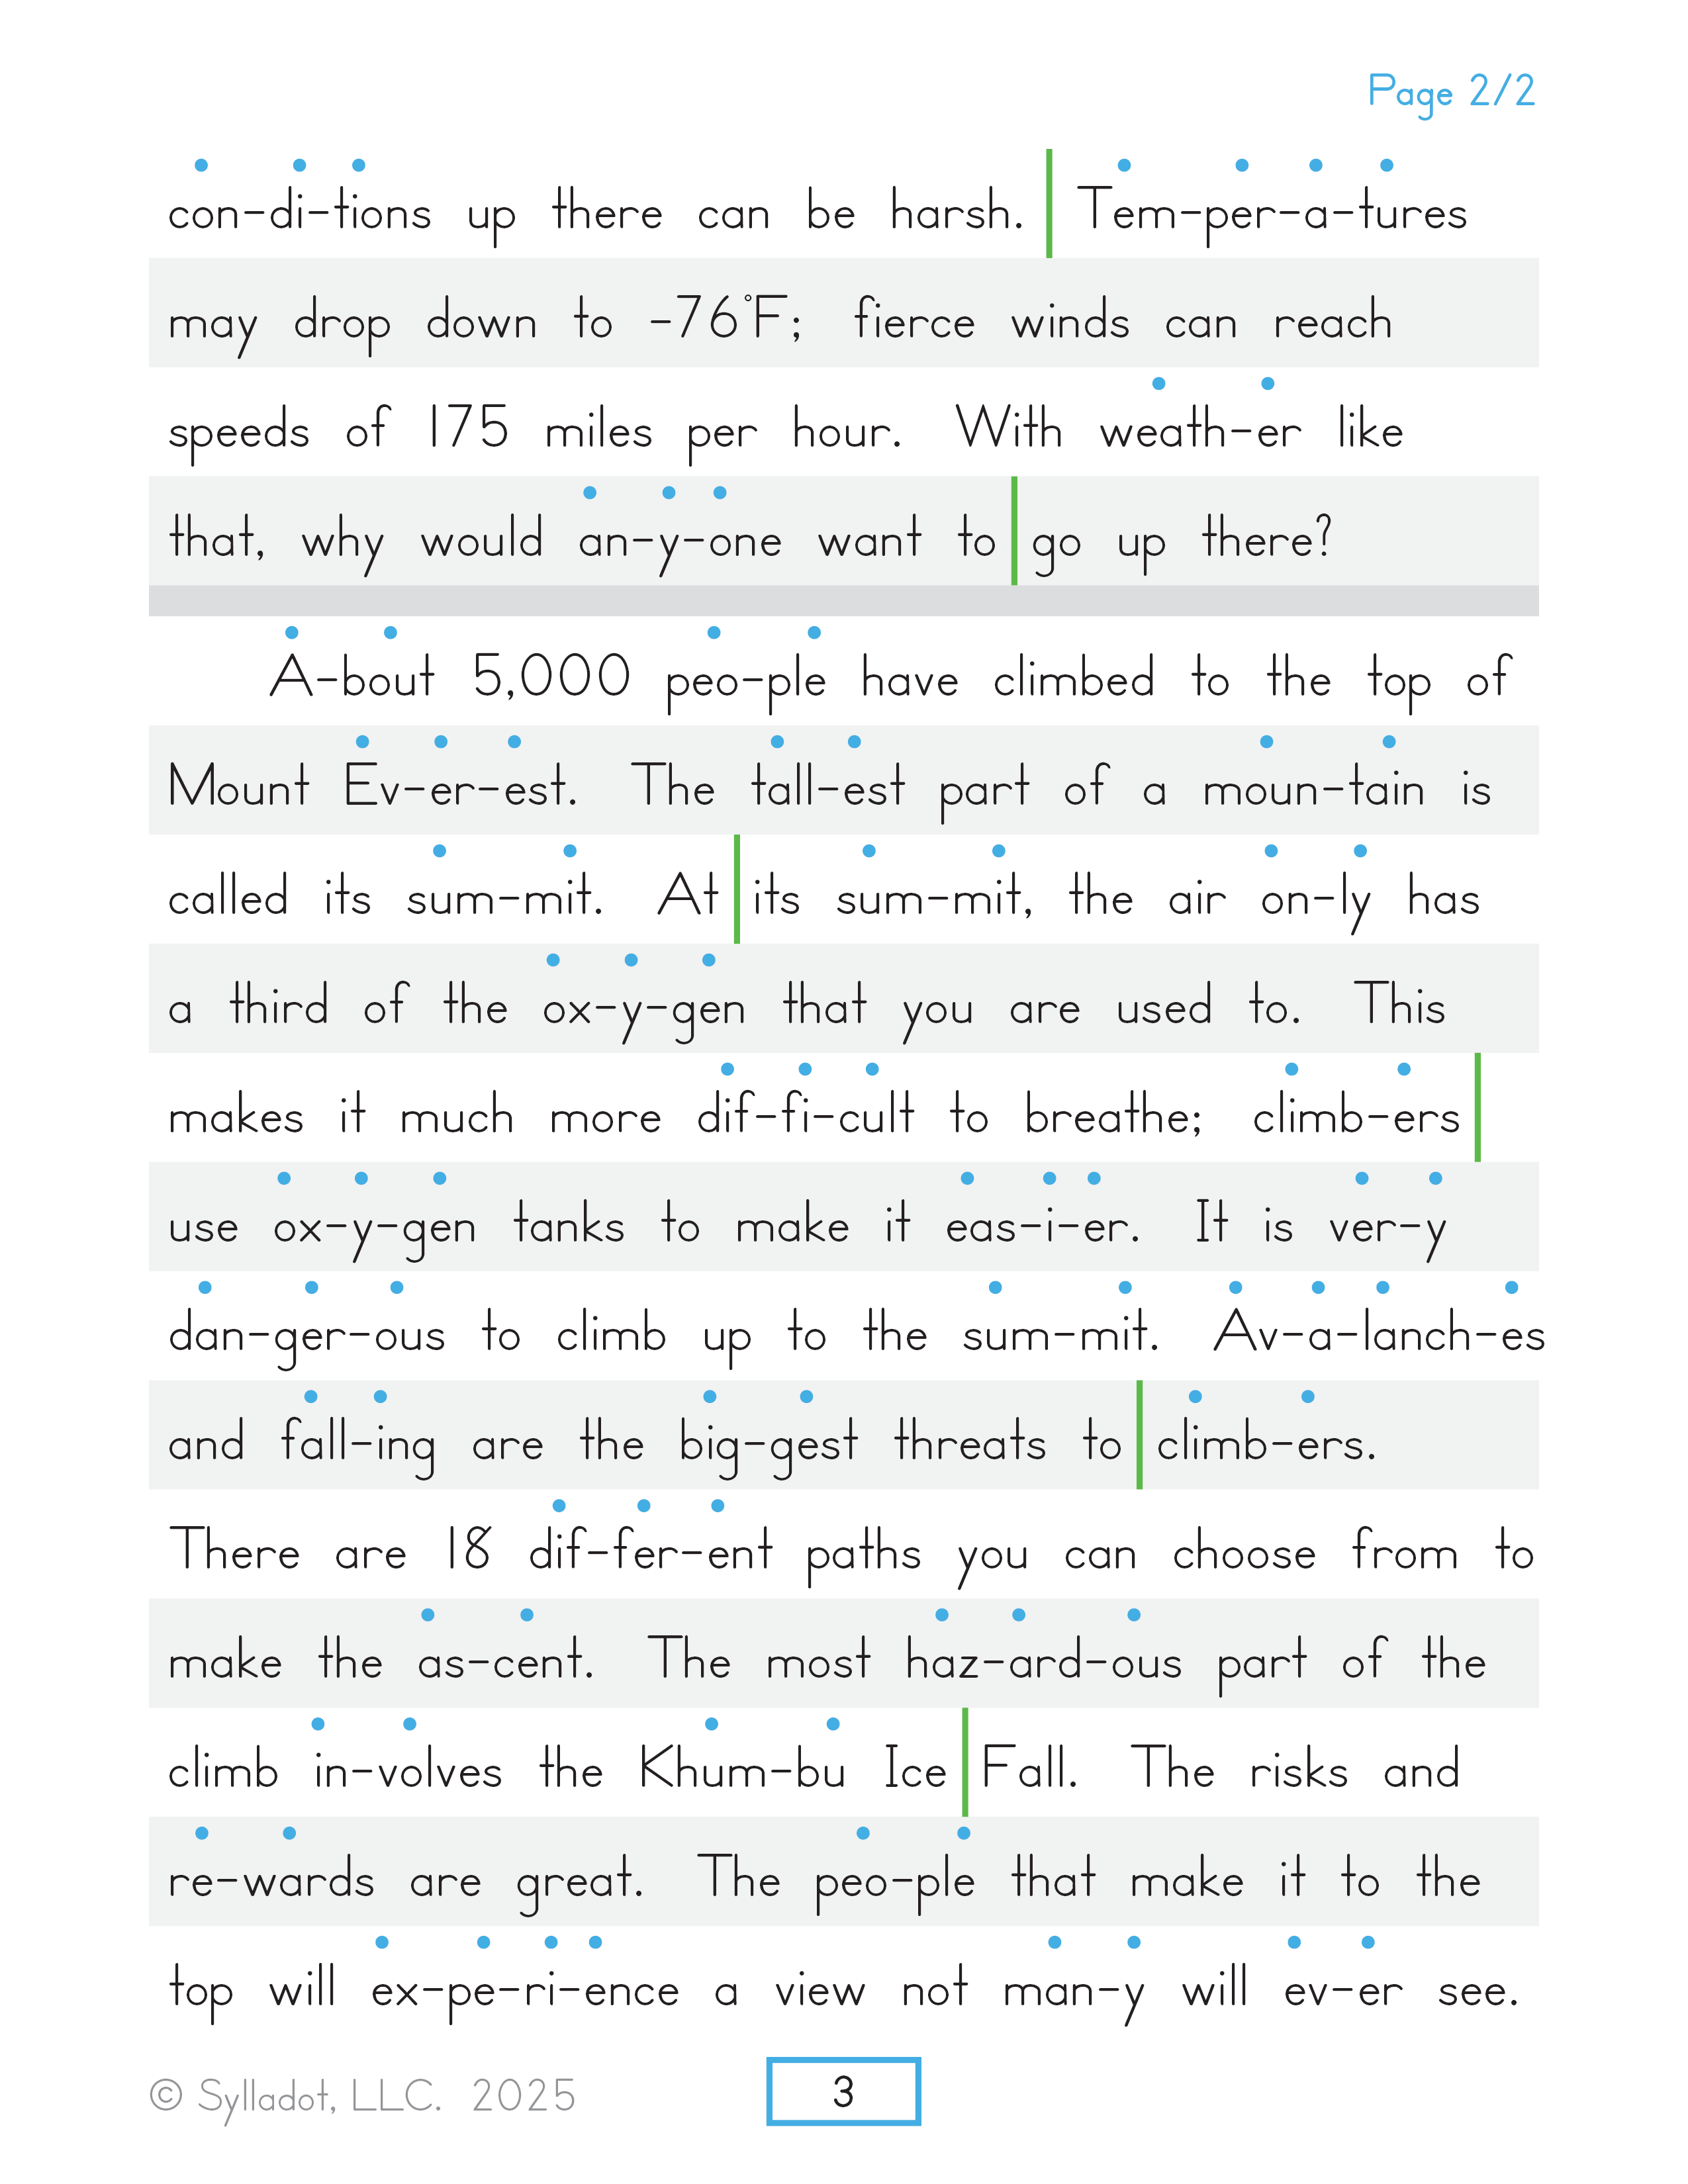 Page 2/2
con-di-tions up there can be harsh. Tem-per-a-tures
may drop down to -76°F; fierce winds can reach
speeds of 175 miles per hour. With weath-er like
that, why would an-y-one want to go up there?
A-bout 5,000 peo-ple have climbed to the top of
Mount Ev-er-est. The tall-est part of a moun-tain is
called its sum-mit. At its sum-mit, the air on-ly has
a third of the ox-y-gen that you are used to. This
makes it much more dif-fi-cult to breathe; climb-ers
use ox-y-gen tanks to make it eas-i-er. It is ver-y
dan-ger-ous to climb up to the sum-mit. Av-a-lanch-es
and fall-ing are the big-gest threats to climb-ers.
There are 18 dif-fer-ent paths you can choose from to
make the as-cent. The most haz-ard-ous part of the
climb in-volves the Khum-bu Ice Fall. The risks and
re-wards are great. The peo-ple that make it to the
top will ex-pe-ri-ence a view not man-y will ev-er see.
© Sylladot, LLC. 2025
3